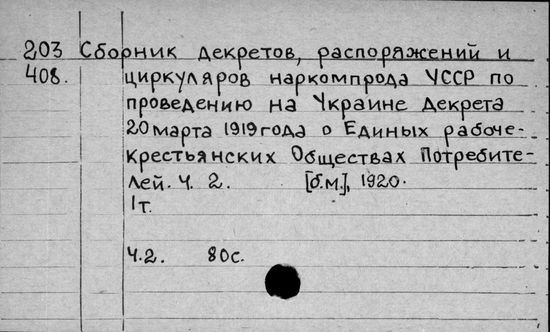 203 Сборник декретов, распоряжений и
408. циркуляров наркомпрода УССР по
проведению на Украине декрета
20 марта 1919 года о Единых рабоче-
крестьянских Обществах Потребите-
лей. Ч. 2. [б.м.], 1920.
1т.
Ч.2. 80с.